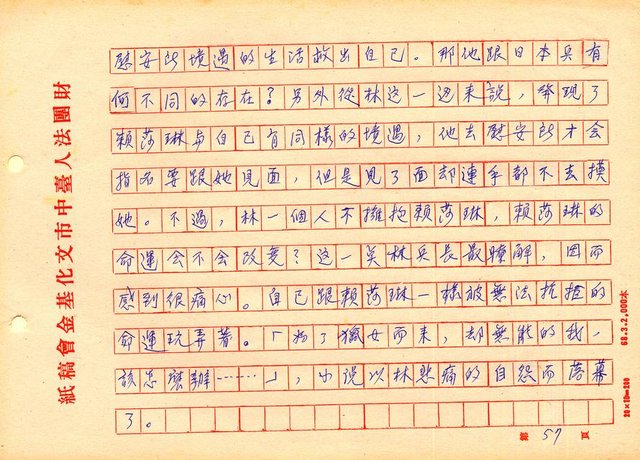 慰安所境遇的生活救出自己。那他跟日本兵有
何不同的存在?另外從林這一边来説,發现了
賴莎琳与自己有同樣的境遇,他去慰安所才会
指名要跟她見面,但是見了面却連手都不去摸
她。不過,林一個人不擁抱賴莎琳,賴莎琳的
命運会不会改変?這一矣林兵長最瞭解,因而
感到很痛心。自己跟賴莎琳一樣被無法抗拒的
命運玩弄著。「為了獵女而来,却無能的我,
該怎麼辦……」,小说以林悲痛的自怨而落幕
了。
財團法人臺中市文化基金會稿紙
第 57 頁
20×10=200
68.3.2,000本